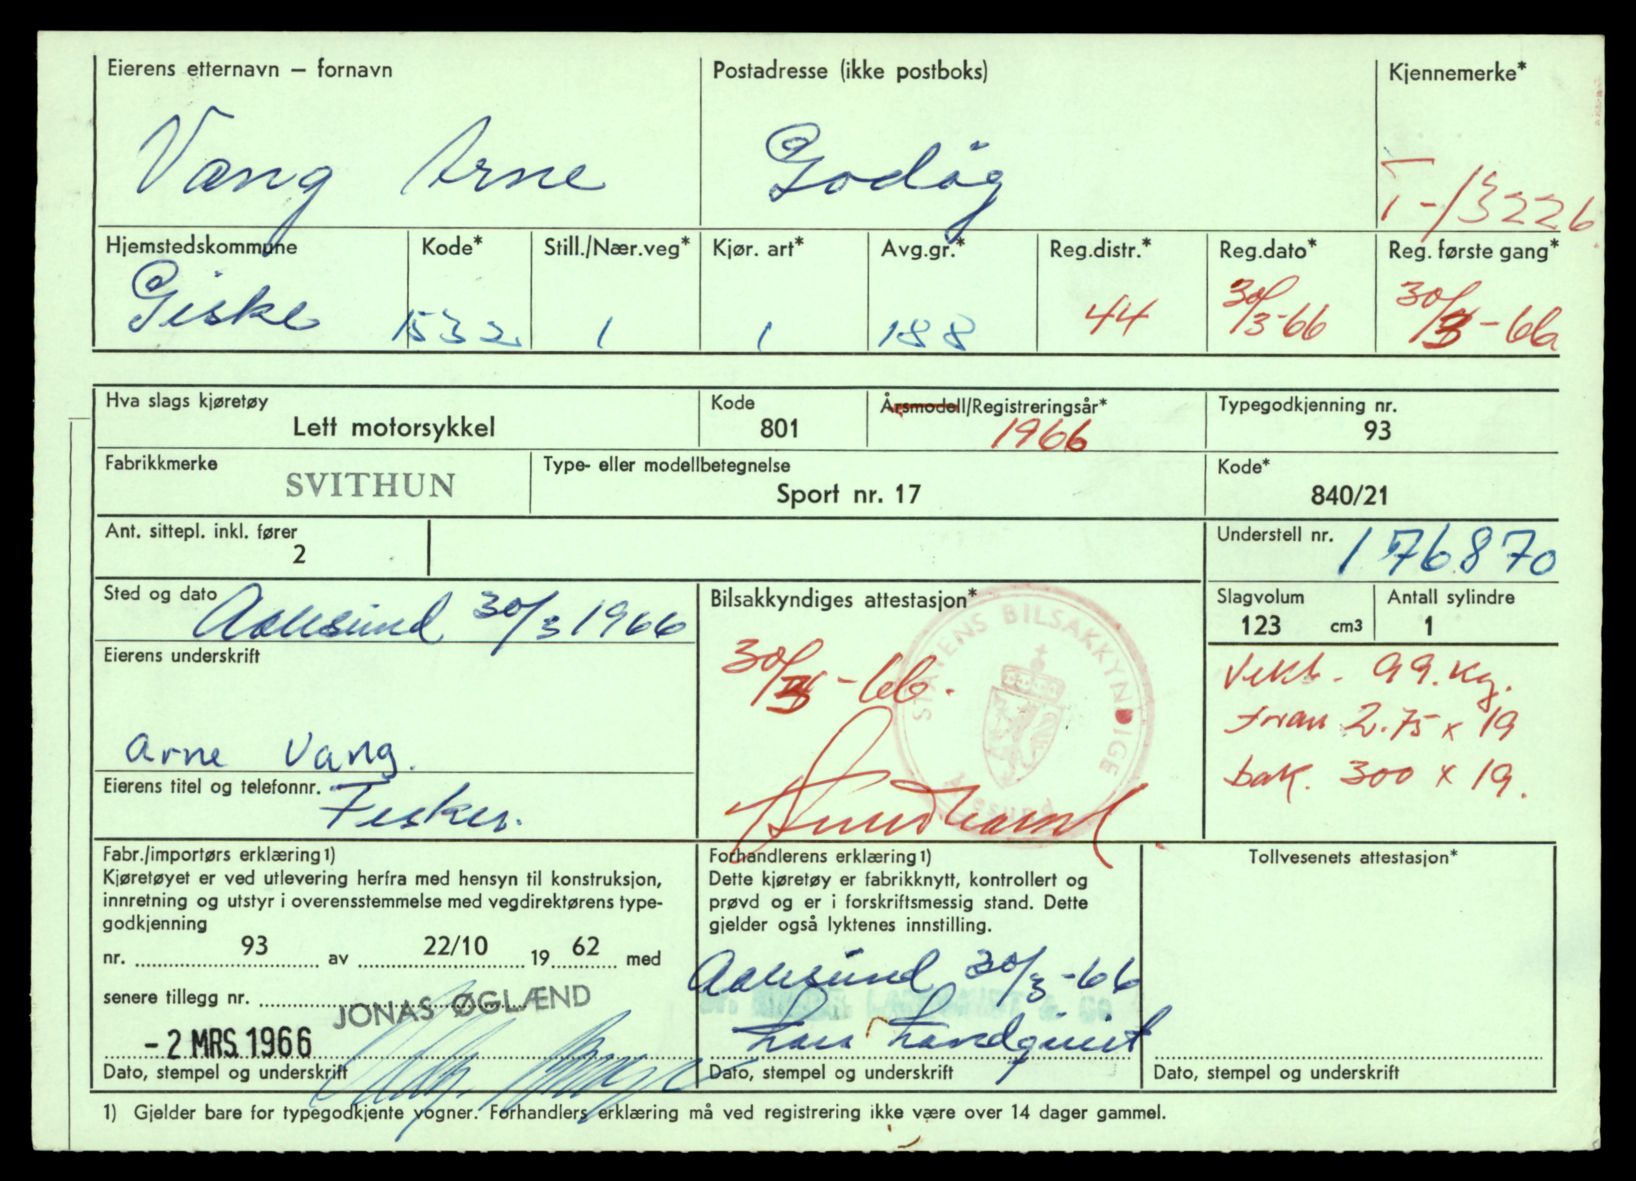 Eierens etternavn – fornavn
Postadresse (ikke postboks)
Kjennemerke*
Vang Arne
Godøy
T-13226
Hjemstedskommune
Kode*
Still./Nær.veg*
Kjør. art*
Avg.gr.*
Reg.distr.*
Reg.dato*
Reg. første gang*
Giske
1532
1
1
188
44
30/3-66
30/3-66
Hva slags kjøretøy
Kode
Årsmodell/Registreringsår*
Typegodkjenning nr.
Lett motorsykkel
801
1966
93
Fabrikkmerke
Type- eller modellbetegnelse
Kode*
SVITHUN
Sport nr. 17
840/21
Ant. sittepl. inkl. fører
Understell nr.
2
176870
Sted og dato
Bilsakkyndiges attestasjon*
Slagvolum
Antall sylindre
Aalesund 30/3 1966
123 cm3
1
STATENS BILSAKKYNDIGE
Eierens underskrift
30/3-66.
Vekt. 99. kg.
fran 2.75 x 19
bak. 300 x 19.
Arne Vang.
Eierens titel og telefonnr.
Fisker.
Fabr./importørs erklæring1)
Kjøretøyet er ved utlevering herfra med hensyn til konstruksjon,
innretning og utstyr i overensstemmelse med vegdirektørens type-
godkjenning
nr. 93 av 22/10 19 62 med
senere tillegg nr.
JONAS ØGLÆND
-2 MRS. 1966
Dato, stempel og underskrift
Forhandlerens erklæring1)
Dette kjøretøy er fabrikknytt, kontrollert og
prøvd og er i forskriftsmessig stand. Dette
gjelder også lyktenes innstilling.
Aalesund 30/3-66
Lars Landquist
Dato, stempel og underskrift
Tollvesenets attestasjon*
Dato, stempel og underskrift
1) Gjelder bare for typegodkjente vogner. Forhandlers erklæring må ved registrering ikke være over 14 dager gammel.